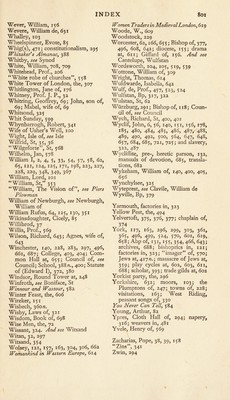 INDEX 801
Wever, William, 156
Wevere, William de, 651
Whadley, 103
Wheelspinner, Evon, 83
Whig(s), 471; constitutionalism, 295
Whitaker, 601
Whitby, see Synod
White, William, 708, 709
Whitehead, Prof., 206
"White robe of churches", 558
White Tower of London, the, 307
Whitington, June of, 107
Whitney, Prof. J. P., 34
Whiting, Geoffrey, 693; John, son of, 693; Mahel, wife of, 69
Whitmund, 321
Whit Sunday, 599
Whytheyngewk, Robert, 341
Wife of Usher's Well, 100
Wight, Isle of, see Isle
Wilfrid, St, 35, 36
"Wilgeforte", St, 568
Wilkins, 614
William I, 2, 4, 7, 33, 54, 57, 58, 62, 65, 121, 124, 125, 171, 198, 225, 227, 228, 229, 348, 349, 367
William, Lord, 101
"William, Sir", 351
"William, The Vision of", see Piers Plowman
William of Newburgh, see Newburgh, William of
William Rufus, 64, 121, 130, 351
Willoughughton, Cissily, 85
Willshend, 57
Willis, Prof., 569
Wilson, Richard, 643; Agnes, wife of, 643
Winchester, 140, 228, 283, 297, 496, 662, 687; College, 403, 404; Common Hall at, 671; Council of, see Council; School, 380 n., 400; Statute of (Edward I), 379, 380
Windsor, Round Tower at, 248
Winfrith, see Boniface, St
Winnour and Wastour, 582
Winter Feast, the, 606
Wireker, 111
Wisbech, 360 n.
Wisby, Laws of, 321
Wisdom, Book of, 698
Wise Mon, the, 72
Wissant, 324. And see Witsand
Witan, 32, 297
Witsand, 354
Wolsey, 121, 157, 163, 304, 306, 662
Womankind in Western Europe, 624
Women Traders in Mediæval London, 619
Woode, W., 609
Woodstock, 229
Worcester, 62, 166, 655; Bishop of, 377, 406, 608, 643; diocese, 155; drama at, 611; Giffard of, 156. And see Cantelupe, Wulfstan
Wordsworth, 224, 505, 519, 539
Wottone, William of, 709
Wright, Thomas, 614
Wulfwarde, Isabella, 641
Wulf, de, Prof., 457, 513, 514
Wulfstan, Bp, 317, 322
Wulstan, St, 62
Würzburg, 291; Bishop of, 118; Council of, see Council
Wych, Richard, St, 400, 401
Wyclif, John, 6, 36, 140, 151, 176, 178, 185, 460, 484, 485, 486, 487, 488, 489, 490, 492, 500, 564, 647, 648, 657, 684, 685, 721, 725; and slavery, 321, 487
Wyclifite, pre-, heretic parson, 132; manuals of devotion, 681; translations, 682
Wykeham, William of, 140, 400, 405, 656
Wynchylsey, 321
Wytepese, see Clavile, William de
Wyville, Bp, 379

Yarmouth, factories in, 323
Yellow Pest, the, 494
Yelverton, 375, 376, 377; chaplain of, 377
York, 117, 163, 296, 299, 305, 361, 363, 406, 499, 514, 570, 602, 619, 658; Abp of, 151, 155, 154, 406, 642; archives, 688; bishoprics in, 121; factories in, 323; "image" of, 570; Jews at, 427 n.; massacre of Jews at, 119; play cycles at, 602, 603, 611, 688; scholar, 993; trade gilds at, 602
Yorkist party, the, 296
Yorkshire, 632; moors, 103; the Plumptons of, 247; towns of, 228; villages, 163; West Riding, peasant songs of, 550
You Never Can Tell, 584
Young, Arthur, 82
Ypres, Cloth Hall of, 294; napery, 316; weavers in, 481
Yvele, Henry of, 569

Zacharias, Pope, 38, 39, 158
"Zins", 341
Zwin, 294